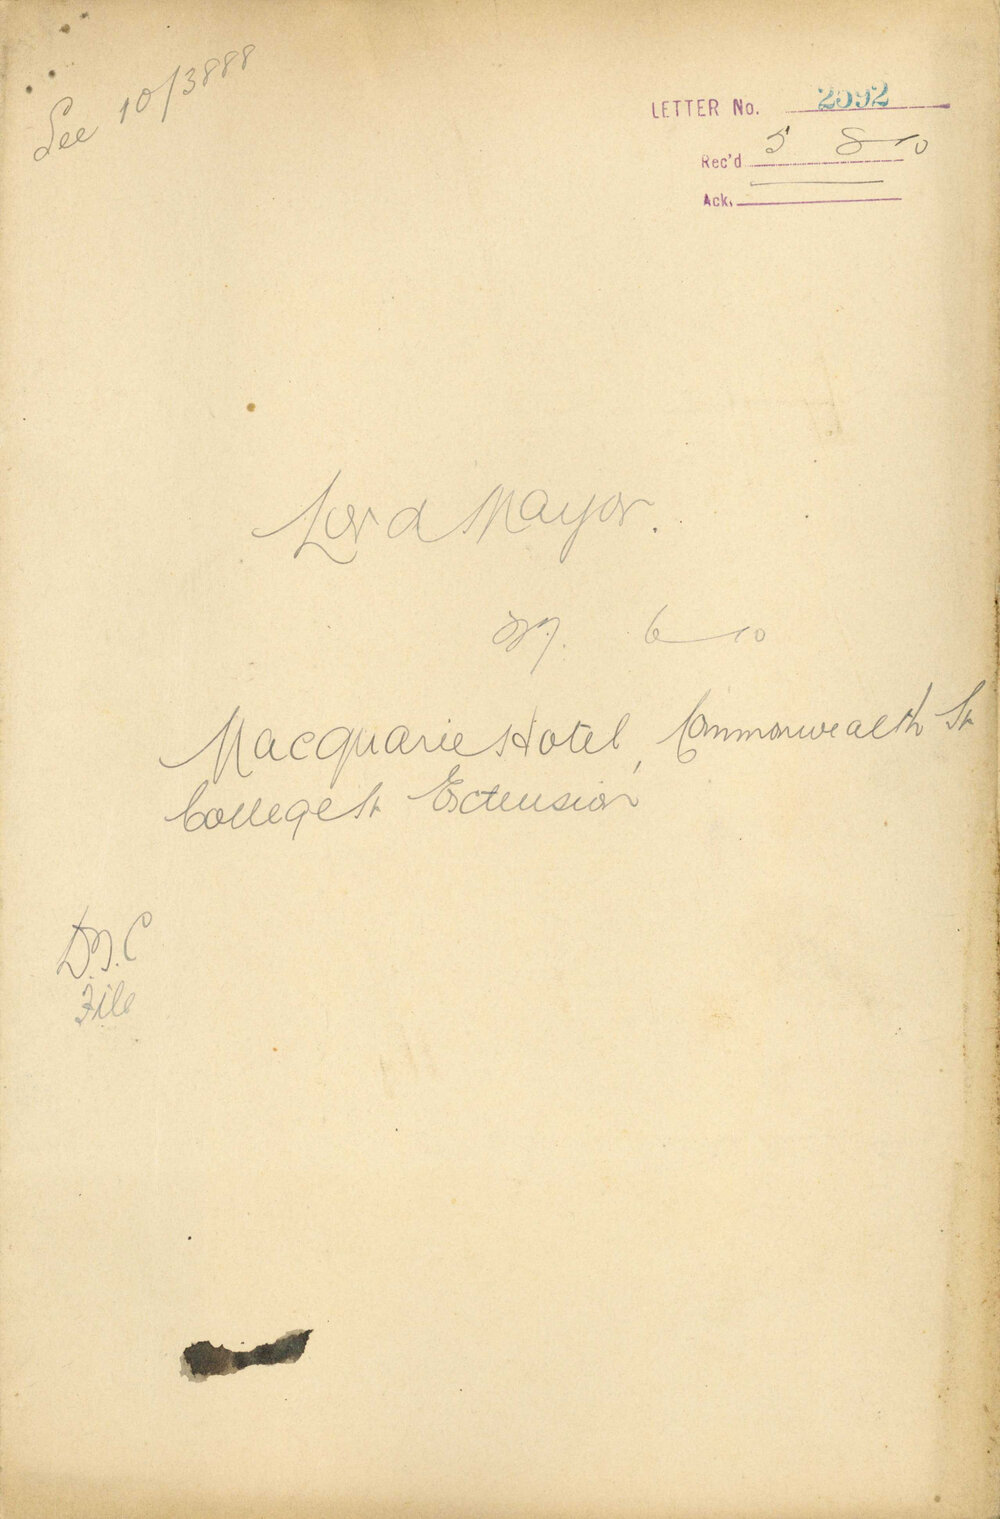 See 10/3888
LETTER No. 2592
Rec'd 5 8 10
Ack.
Lord Mayor.
27. 6 10
Macquarie Hotel, Commonwealth St
College St Extension
D.T.C
File